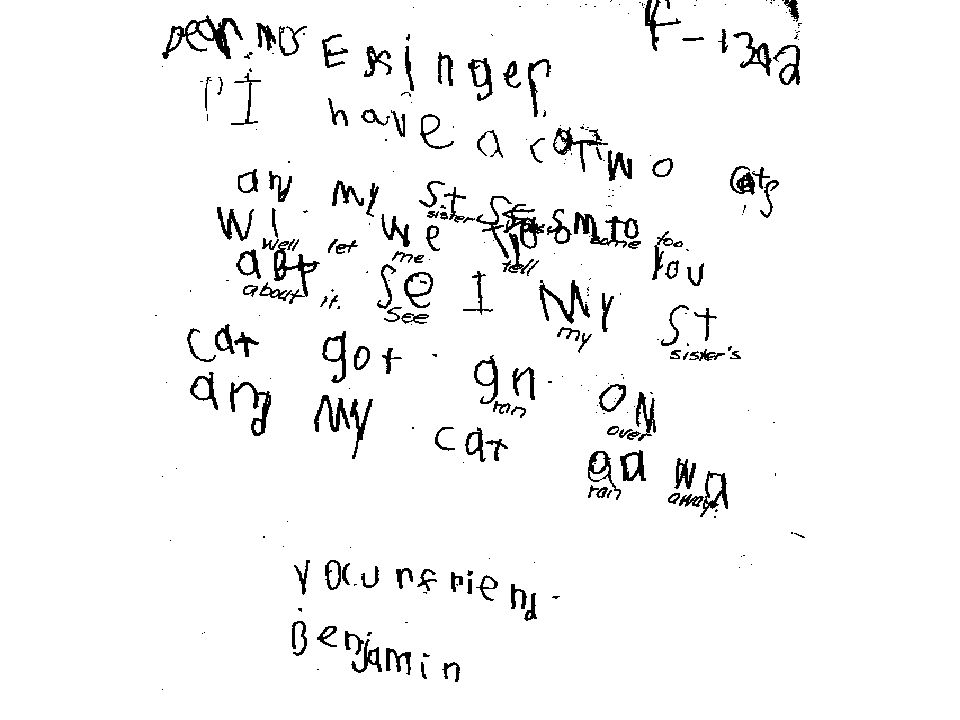 Dear mrs Essinger
I have a cat two cats
and my St
sister some too.
Wl we tell you
well let me tell
abt SE I MY ST
about it. see my sister's
cat got gn on
ran over
and MY cat an wa
ran away.
Your friend
Benjamin